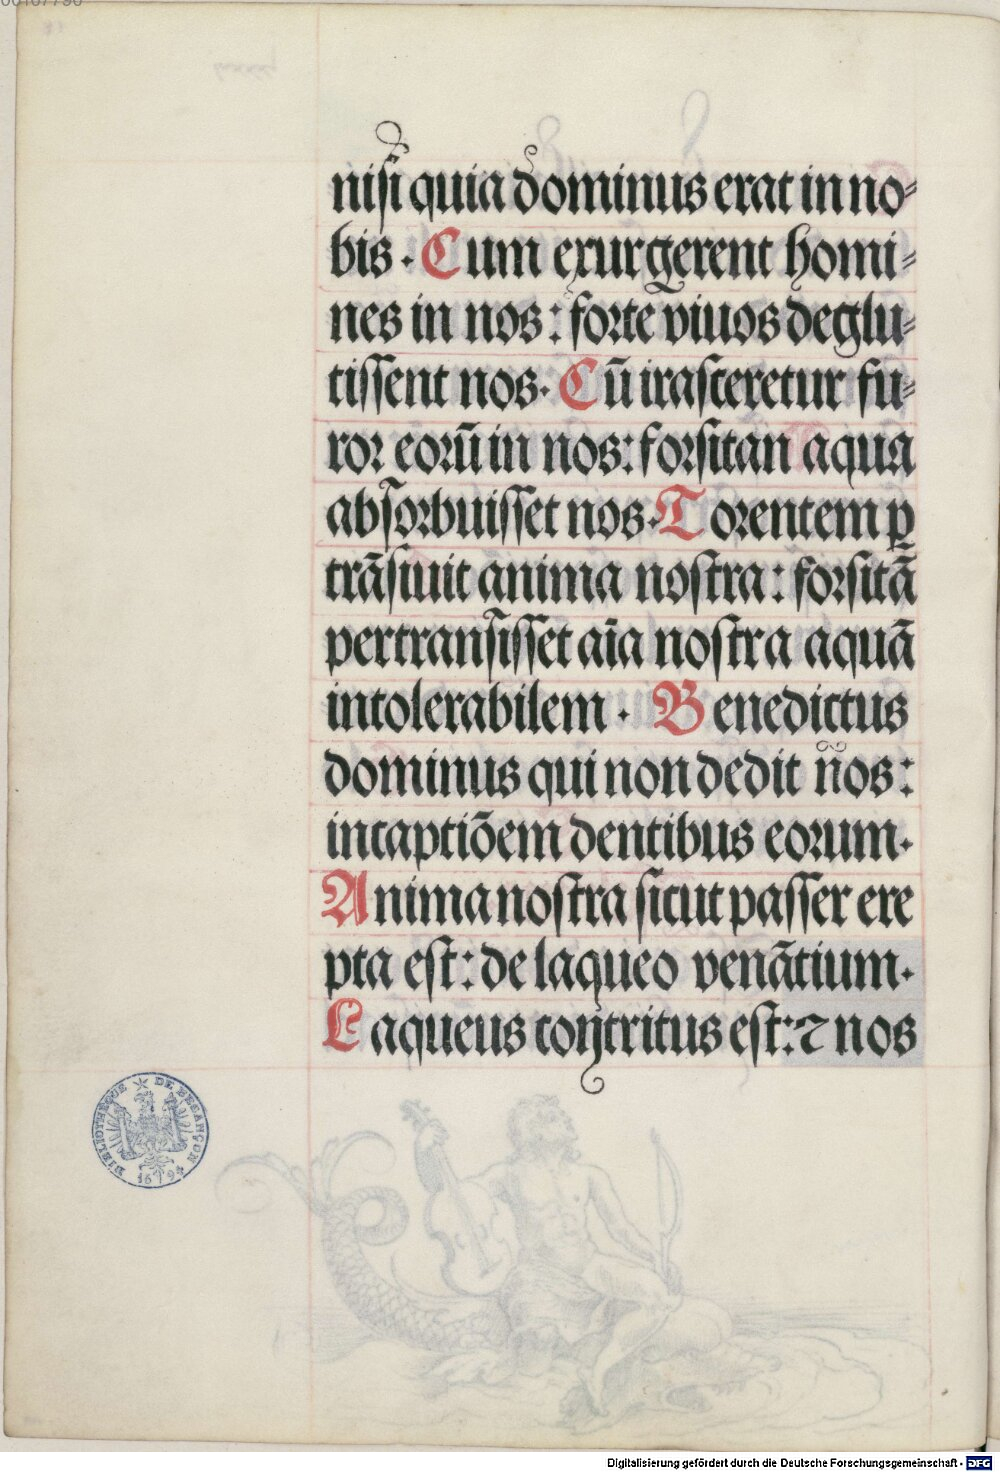 00107790
nisi quia dominus erat in no⸗
bis . Cum exurgerent homi⸗
nes in nos : forte viuos deglu⸗
tissent nos . Cū irasceretur fu⸗
ror eorū in nos : forsitan aqua
absorbuisset nos . Torentem ꝑ
trāsiuit anima nostra : forsitā
pertransisset aīa nostra aquā
intolerabilem . Benedictus
dominus qui non dedit nos :
in captiōem dentibus eorum .
Anima nostra sicut passer ere
pta est : de laqueo venātium .
Laqueus contritus est : ⁊ nos
BIBLIOTHEQUE DE BESANÇON
1694
Digitalisierung gefördert durch die Deutsche Forschungsgemeinschaft - DFG